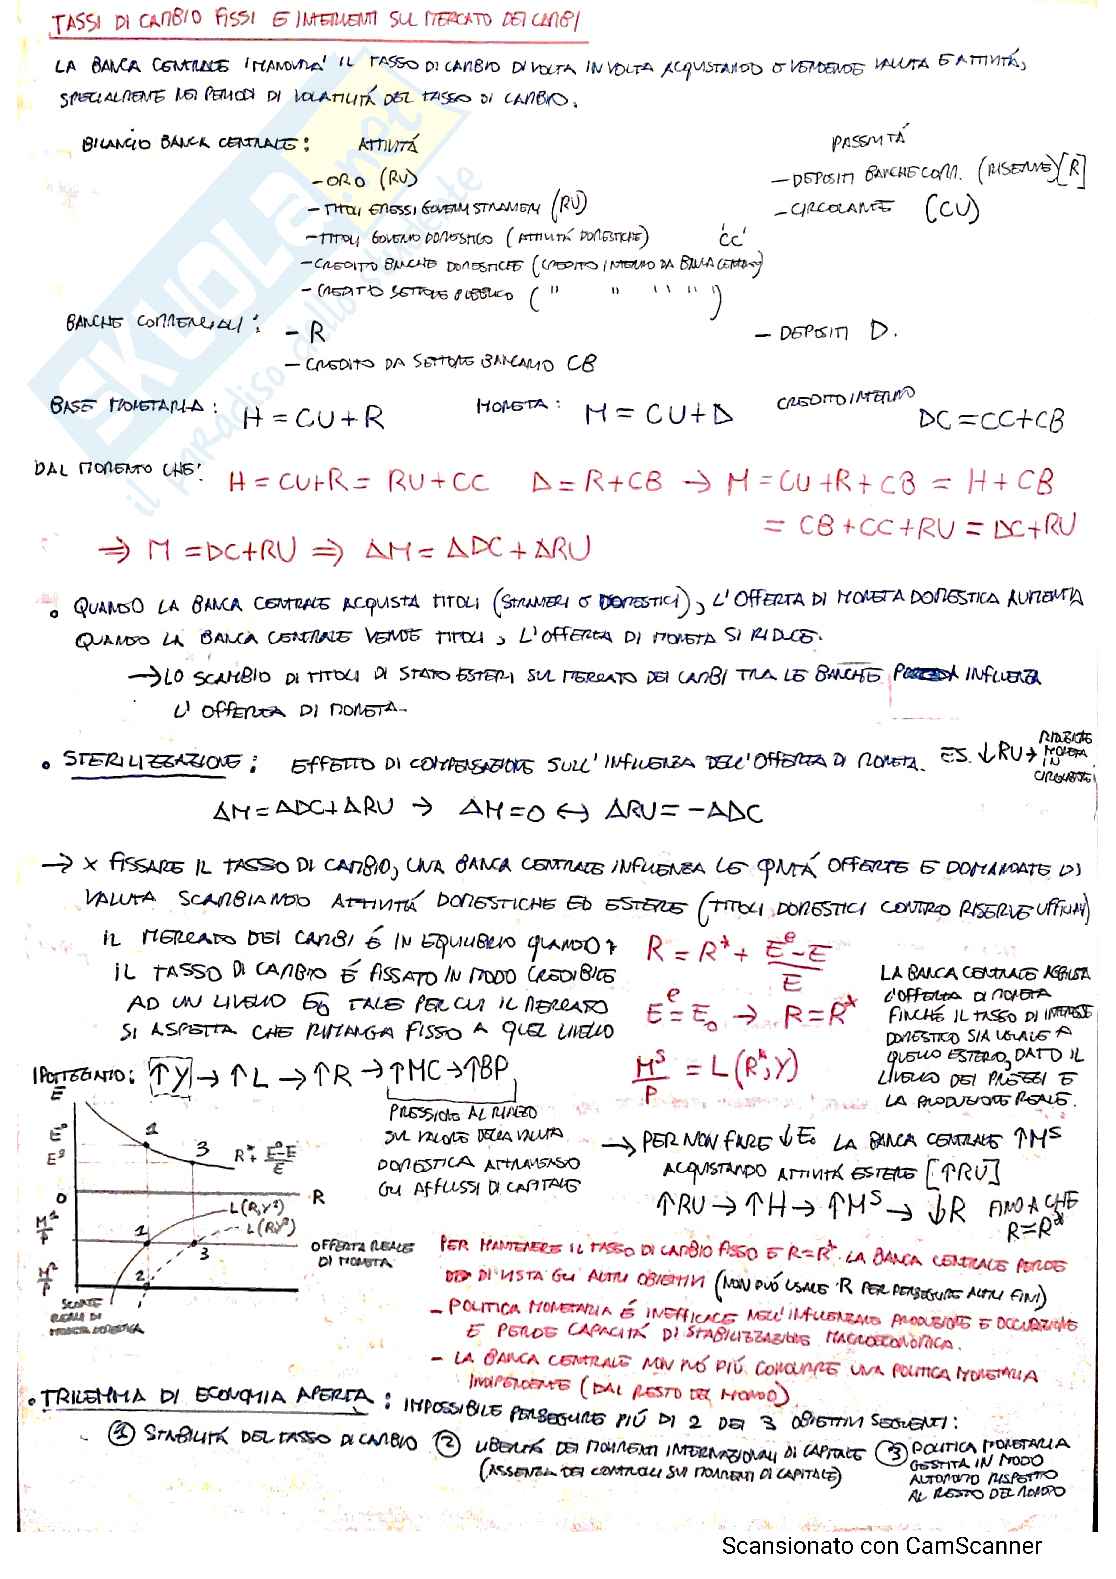 TASSI DI CAMBIO FISSI E INTERVENTI SUL MERCATO DEI CAMBI
LA BANCA CENTRALE "MANOVRA" IL TASSO DI CAMBIO DI VOLTA IN VOLTA ACQUISTANDO O VENDENDO VALUTA E ATTIVITÁ,
SPECIALMENTE NEI PERIODI DI VOLATILITÁ DEL TASSO DI CAMBIO.
BILANCIO BANCA CENTRALE: ATTIVITÁ PASSIVITÁ
- ORO (RU) - DEPOSITI BANCHE COMM. (RISERVE) [R]
- TITOLI EMESSI GOVERNI STRANIERI (RU) - CIRCOLANTE (CU)
- TITOLI GOVERNO DOMESTICO (ATTIVITÁ DOMESTICHE) 'CC'
- CREDITO BANCHE DOMESTICHE (CREDITO INTERNO DA BANCA CENTRALE)
- CREDITO SETTORE PUBBLICO ( " " " " " )
BANCHE COMMERCIALI: - R - DEPOSITI D.
- CREDITO DA SETTORE BANCARIO CB
BASE MONETARIA: H = CU + R MONETA: M = CU + D CREDITO INTERNO DC = CC + CB
DAL MOMENTO CHE: H = CU + R = RU + CC D = R + CB → M = CU + R + CB = H + CB
= CB + CC + RU = DC + RU
⇒ M = DC + RU ⇒ ΔM = ΔDC + ΔRU
• QUANDO LA BANCA CENTRALE ACQUISTA TITOLI (STRANIERI O DOMESTICI), L'OFFERTA DI MONETA DOMESTICA AUMENTA
QUANDO LA BANCA CENTRALE VENDE TITOLI, L'OFFERTA DI MONETA SI RIDUCE.
→ LO SCAMBIO DI TITOLI DI STATO ESTERI SUL MERCATO DEI CAMBI TRA LE BANCHE INFLUENZA
L'OFFERTA DI MONETA.
• STERILIZZAZIONE: EFFETTO DI COMPENSAZIONE SULL'INFLUENZA DELL'OFFERTA DI MONETA. ES. ↓RU → RIDUCE MONETA IN CIRCOLAZIONE
ΔM = ΔDC + ΔRU → ΔM = 0 ↔ ΔRU = -ΔDC
→ X FISSARE IL TASSO DI CAMBIO, UNA BANCA CENTRALE INFLUENZA LE QNTÁ OFFERTE E DOMANDATE DI
VALUTA SCAMBIANDO ATTIVITÁ DOMESTICHE ED ESTERE (TITOLI DOMESTICI CONTRO RISERVE UFFICIALI)
IL MERCATO DEI CAMBI É IN EQUILIBRIO QUANDO: R = R* + (E^e - E)/E
IL TASSO DI CAMBIO É FISSATO IN MODO CREDIBILE
AD UN LIVELLO E₀ TALE PER CUI IL MERCATO
SI ASPETTA CHE RIMANGA FISSO A QUEL LIVELLO
E^e = E₀ → R = R*
M^S/P = L(R*, Y)
LA BANCA CENTRALE AGGIUSTA
L'OFFERTA DI MONETA
FINCHÉ IL TASSO DI INTERESSE
DOMESTICO SIA UGUALE A
QUELLO ESTERO, DATO IL
LIVELLO DEI PREZZI E
LA PRODUZIONE REALE.
IPOTIZZIAMO: ↑Y → ↑L → ↑R → ↑MC → ↑BP
PRESSIONE AL RIALZO
SUL VALORE DELLA VALUTA
DOMESTICA ATTRAVERSO
GLI AFFLUSSI DI CAPITALE
→ PER NON FARE ↓E₀ LA BANCA CENTRALE ↑M^S
ACQUISTANDO ATTIVITÁ ESTERE [↑RU]
↑RU → ↑H → ↑M^S → ↓R FINO A CHE
R = R*
E
1
3
R* + (E⁰ - E)/E
0
R
L(R, Y¹)
L(R, Y²)
M¹/P
1
3
OFFERTA REALE
DI MONETA
M²/P
2
SCORTE
REALI DI
MONETA DOMESTICA
PER MANTENERE IL TASSO DI CAMBIO FISSO E R = R* LA BANCA CENTRALE PERDE
DI VISTA GLI ALTRI OBIETTIVI (NON PUÓ USARE R PER PERSEGUIRE ALTRI FINI)
- POLITICA MONETARIA É INEFFICACE NELL'INFLUENZARE PRODUZIONE E OCCUPAZIONE
E PERDE CAPACITÁ DI STABILIZZAZIONE MACROECONOMICA.
- LA BANCA CENTRALE NON PUÓ PIÚ CONDURRE UNA POLITICA MONETARIA
INDIPENDENTE (DAL RESTO DEL MONDO)
• TRILEMMA DI ECONOMIA APERTA: IMPOSSIBILE PERSEGUIRE PIÚ DI 2 DEI 3 OBIETTIVI SEGUENTI:
① STABILITÁ DEL TASSO DI CAMBIO ② LIBERTÁ DEI MOVIMENTI INTERNAZIONALI DI CAPITALE
(ASSENZA DEI CONTROLLI SUI MOVIMENTI DI CAPITALE)
③ POLITICA MONETARIA
GESTITA IN MODO
AUTONOMO RISPETTO
AL RESTO DEL MONDO
SKUOLA.net
il paradiso dello studente
Scansionato con CamScanner